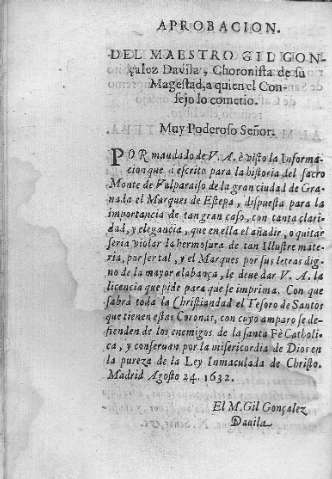 APROBACION.
DEL MAESTRO GIL GON-
çalez Davila, Choronista de su
Magestad, a quien el Con-
sejo lo cometio.
Muy Poderoso Señor.
POR mandado de V. A. è visto la Informa-
cion que à escrito para la historia del sacro
Monte de Valparaiso de la gran ciudad de Gra-
nada el Marques de Estepa, dispuesta para la
importancia de tan gran caso, con tanta clari-
dad, y elegancia, que en ella el añadir, o quitar
seria violar la hermosura de tan Illustre mate-
ria, por ser tal, y el Marques por sus letras dig-
no de la mayor alabança, le deue dar V. A. la
licencia que pide para que se imprima. Con que
sabrà toda la Christiandad el Tesoro de Santos
que tienen estas Coronas, con cuyo amparo se de-
fienden de los enemigos de la santa Fè Catholi-
ca, y conseruan por la misericordia de Dios en
la pureza de la Ley Inmaculada de Christo.
Madrid Agosto 24. 1632.
El M. Gil Gonçalez
Dauila.